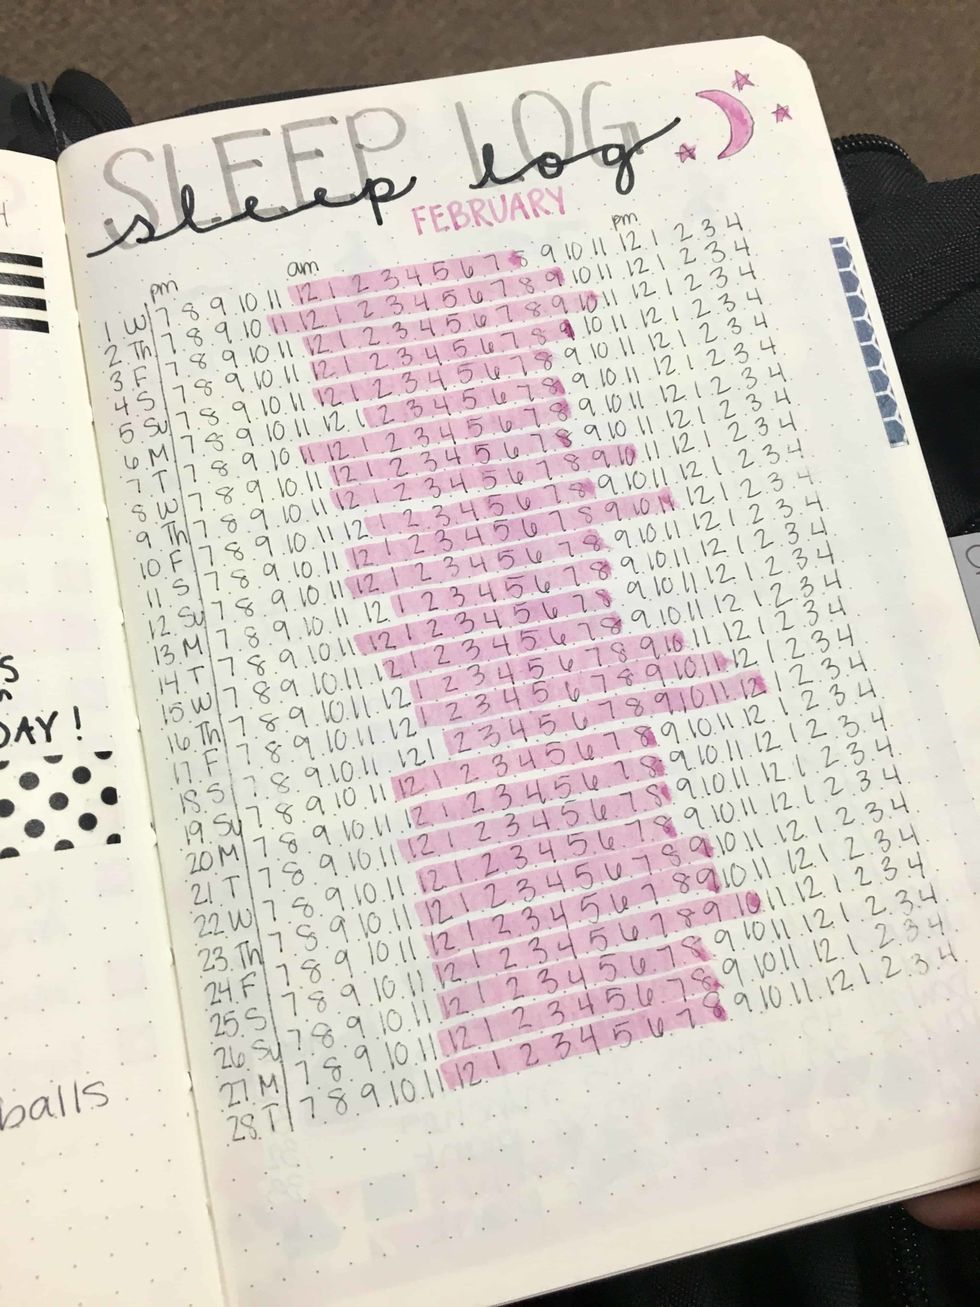 H
S
DAY!
balls
SLEEP LOG
sleep log
FEBRUARY
pm am pm
1 W 7 8 9 10 11 12 1 2 3 4 5 6 7 8 9 10 11 12 1 2 3 4
2. Th 7 8 9 10 11 12 1 2 3 4 5 6 7 8 9 10 11 12 1 2 3 4
3 F 7 8 9 10 11 12 1 2 3 4 5 6 7 8 9 10 11 12 1 2 3 4
4 S 7 8 9 10 11 12 1 2 3 4 5 6 7 8 9 10 11 12 1 2 3 4
5 Su 7 8 9 10 11 12 1 2 3 4 5 6 7 8 9 10 11 12 1 2 3 4
6 M 7 8 9 10 11 12 1 2 3 4 5 6 7 8 9 10 11 12 1 2 3 4
7. T 7 8 9 10 11 12 1 2 3 4 5 6 7 8 9 10 11 12 1 2 3 4
8 W 7 8 9 10 11 12 1 2 3 4 5 6 7 8 9 10 11 12 1 2 3 4
9 Th 7 8 9 10 11 12 1 2 3 4 5 6 7 8 9 10 11 12 1 2 3 4
10 F 7 8 9 10 11 12 1 2 3 4 5 6 7 8 9 10 11 12 1 2 3 4
11 S 7 8 9 10 11 12 1 2 3 4 5 6 7 8 9 10 11 12 1 2 3 4
12. Su 7 8 9 10 11 12 1 2 3 4 5 6 7 8 9 10 11 12 1 2 3 4
13. M 7 8 9 10 11 12 1 2 3 4 5 6 7 8 9 10 11 12 1 2 3 4
14. T 7 8 9 10 11 12 1 2 3 4 5 6 7 8 9 10 11 12 1 2 3 4
15. W 7 8 9 10 11 12 1 2 3 4 5 6 7 8 9 10 11 12 1 2 3 4
16. Th 7 8 9 10 11 12 1 2 3 4 5 6 7 8 9 10 11 12 1 2 3 4
17. F 7 8 9 10 11 12 1 2 3 4 5 6 7 8 9 10 11 12 1 2 3 4
18. S 7 8 9 10 11 12 1 2 3 4 5 6 7 8 9 10 11 12 1 2 3 4
19. Su 7 8 9 10 11 12 1 2 3 4 5 6 7 8 9 10 11 12 1 2 3 4
20. M 7 8 9 10 11 12 1 2 3 4 5 6 7 8 9 10 11 12 1 2 3 4
21. T 7 8 9 10 11 12 1 2 3 4 5 6 7 8 9 10 11 12 1 2 3 4
22. W 7 8 9 10 11 12 1 2 3 4 5 6 7 8 9 10 11 12 1 2 3 4
23. Th 7 8 9 10 11 12 1 2 3 4 5 6 7 8 9 10 11 12 1 2 3 4
24. F 7 8 9 10 11 12 1 2 3 4 5 6 7 8 9 10 11 12 1 2 3 4
25. S 7 8 9 10 11 12 1 2 3 4 5 6 7 8 9 10 11 12 1 2 3 4
26 Su 7 8 9 10 11 12 1 2 3 4 5 6 7 8 9 10 11 12 1 2 3 4
27. M 7 8 9 10 11 12 1 2 3 4 5 6 7 8 9 10 11 12 1 2 3 4
28. T 7 8 9 10 11 12 1 2 3 4 5 6 7 8 9 10 11 12 1 2 3 4